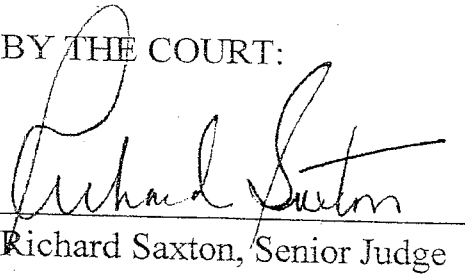 BY THE COURT:
Richard Saxton
Richard Saxton, Senior Judge